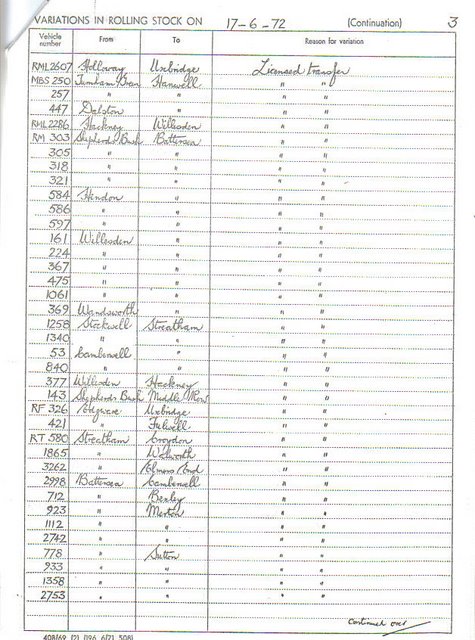 VARIATIONS IN ROLLING STOCK ON 17-6-72 (Continuation) 3
Vehicle number From To Reason for variation
RML2607 Holloway Uxbridge Licensed transfer
MBS 250 Turnham Green Hanwell " "
257 " " " "
447 Dalston " " "
RML 2286 Hackney Willesden " "
RM 303 Shepherds Bush Battersea " "
305 " " " "
318 " " " "
321 " " " "
584 Hendon " " "
586 " " " "
597 " " " "
161 Willesden " " "
224 " " " "
367 " " " "
475 " " " "
1061 " " " "
369 Wandsworth " " "
1258 Stockwell Streatham " "
1340 " " " "
53 Camberwell " " "
840 " " " "
377 Willesden Hackney " "
143 Shepherds Bush Middle Row " "
RF 326 Edgware Uxbridge " "
421 " Fulwell " "
RT 580 Streatham Croydon " "
1865 " Walworth " "
3262 " Elmers End " "
2998 Battersea Camberwell " "
712 " Bexley " "
923 " Merton " "
1112 " " " "
2742 " " " "
778 " Sutton " "
933 " " " "
1358 " " " "
2753 " " " "
Continued over
408/69 (2) (196 6/71 508)